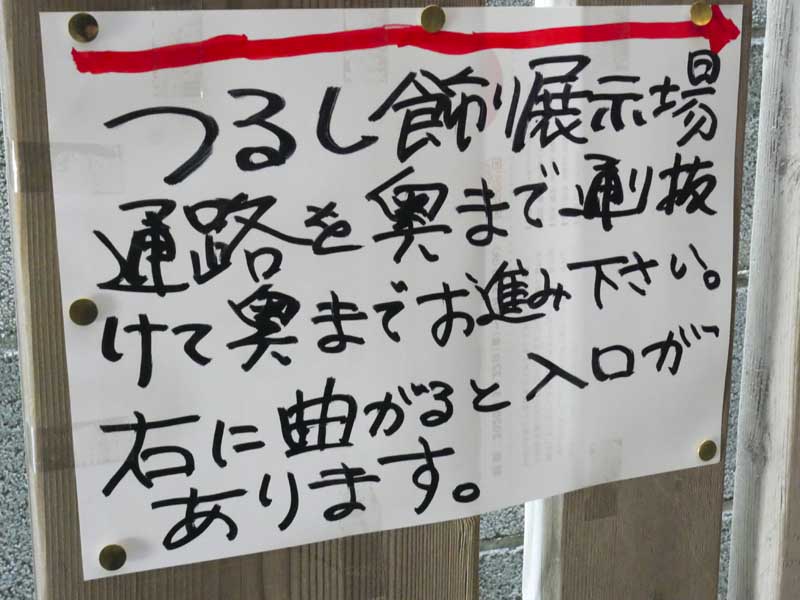 つるし飾り展示場
通路を奥まで通り抜
けて奥までお進み下さい。
右に曲がると入口が
あります。